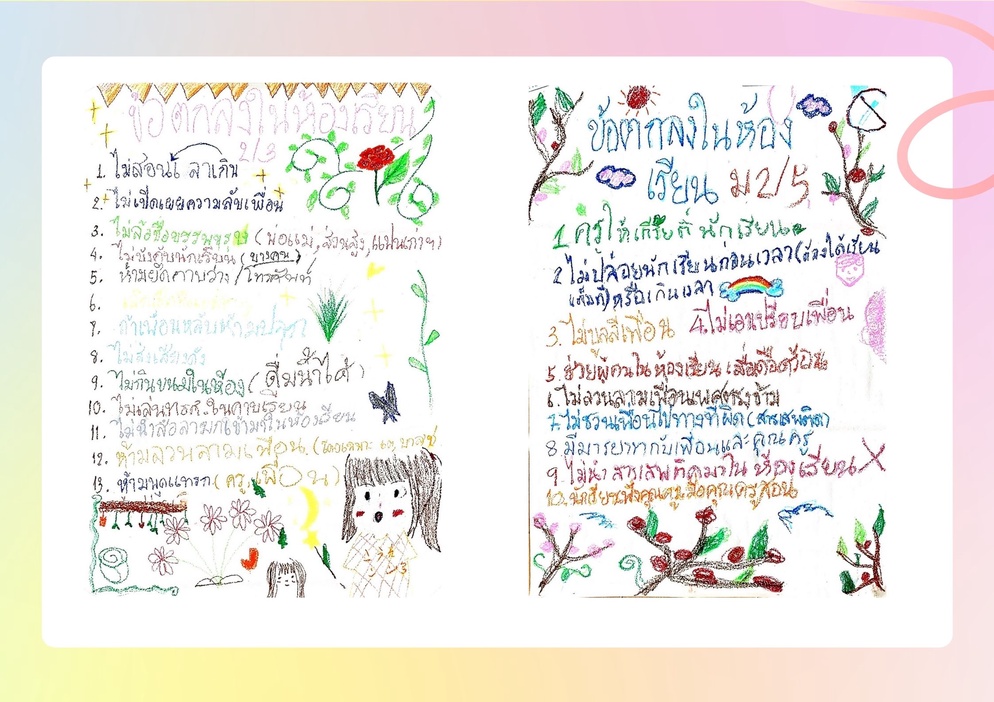 ข้อตกลงในห้องเรียน
2/3
1. ไม่สอนเวลาเกิน
2. ไม่เปิดเผยความลับเพื่อน
3. ไม่ล้อชื่อบรรพบุรุษ (พ่อแม่, ส่วนสูง, แฟนเก่า)
4. ไม่บังคับนักเรียน (บางคน)
5. ห้ามยึดคาบว่าง / โทรศัพท์
6.
7. ถ้าเพื่อนหลับห้ามปลุก
8. ไม่ส่งเสียงดัง
9. ไม่กินขนมในห้อง (ดื่มน้ำได้)
10. ไม่เล่นทรศ. ในคาบเรียน
11. ไม่นำสื่อลามกเข้ามาในห้องเรียน
12. ห้ามลวนลามเพื่อน (โดยเฉพาะ
13. ห้ามพูดแทรก (ครู, เพื่อน)
ข้อตกลงในห้อง
เรียน ม2/5
1 ครูให้เกียรติ์นักเรียน
2 ไม่ปล่อยนักเรียนก่อนเวลา (ต้องได้เรียน
เต็มที่) หรือเกินเวลา
3. ไม่บูลลี่เพื่อน 4. ไม่เอาเปรียบเพื่อน
5. ช่วยผู้คนในห้องเรียน เมื่อถือตัวผิด
6. ไม่ลวนลามเพื่อนเพศตรงข้าม
7. ไม่ชวนเพื่อนไปทางที่ผิด (สารเสพติด)
8. มีมารยาทกับเพื่อนและคุณครู
9. ไม่นำสารเสพติดมาในห้องเรียน X
10. นักเรียนฟังคุณครูเมื่อคุณครูสอน